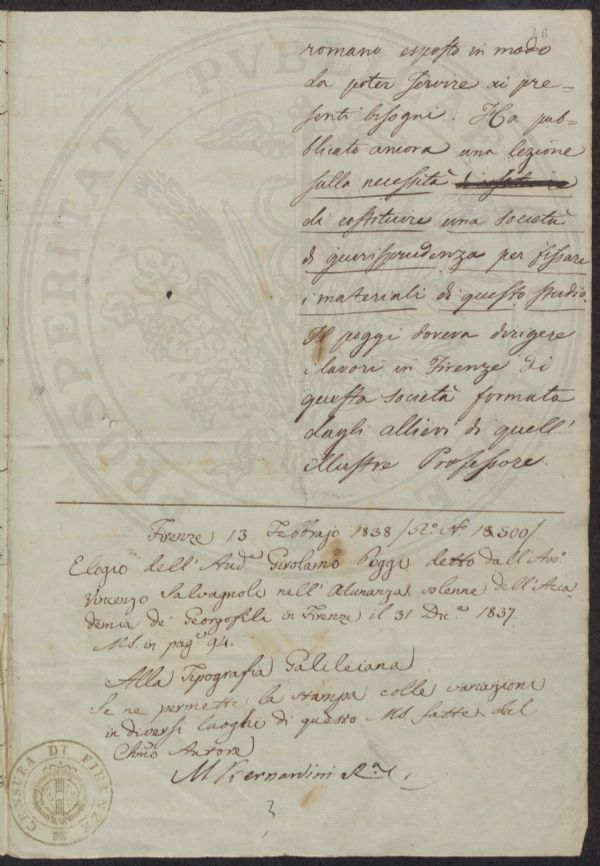 46
romano esposto in modo
da poter servire ai pre=
senti bisogni. Ha pub=
blicato ancora una lezione
sulla necessità
di costituire una società
di giurisprudenza per fissare
i materiali di questo studio.
Il poggi doveva dirigere
i lavori in Firenze di
questa società formata
dagli allievi di quell'
illustre Professore.
Firenze 13 Febbrajo 1838
Elogio dell'Aud.e Girolamo Poggi detto dall'Avv.o
Vincenzo Salvagnoli nell'Adunanza solenne dell'Acca=
demia de' Georgofili in Firenze il 31 Dic.e 1837.
MS. in pag.e 94.
Alla Tipografia Galileiana
Se ne permette la stampa colle variazioni
in diversi luoghi di questo MS. fatte dal
Ch.mo Autore
M Bernardini
CENSURA DI FIRENZE
PROSPERITATI PVBLICAE